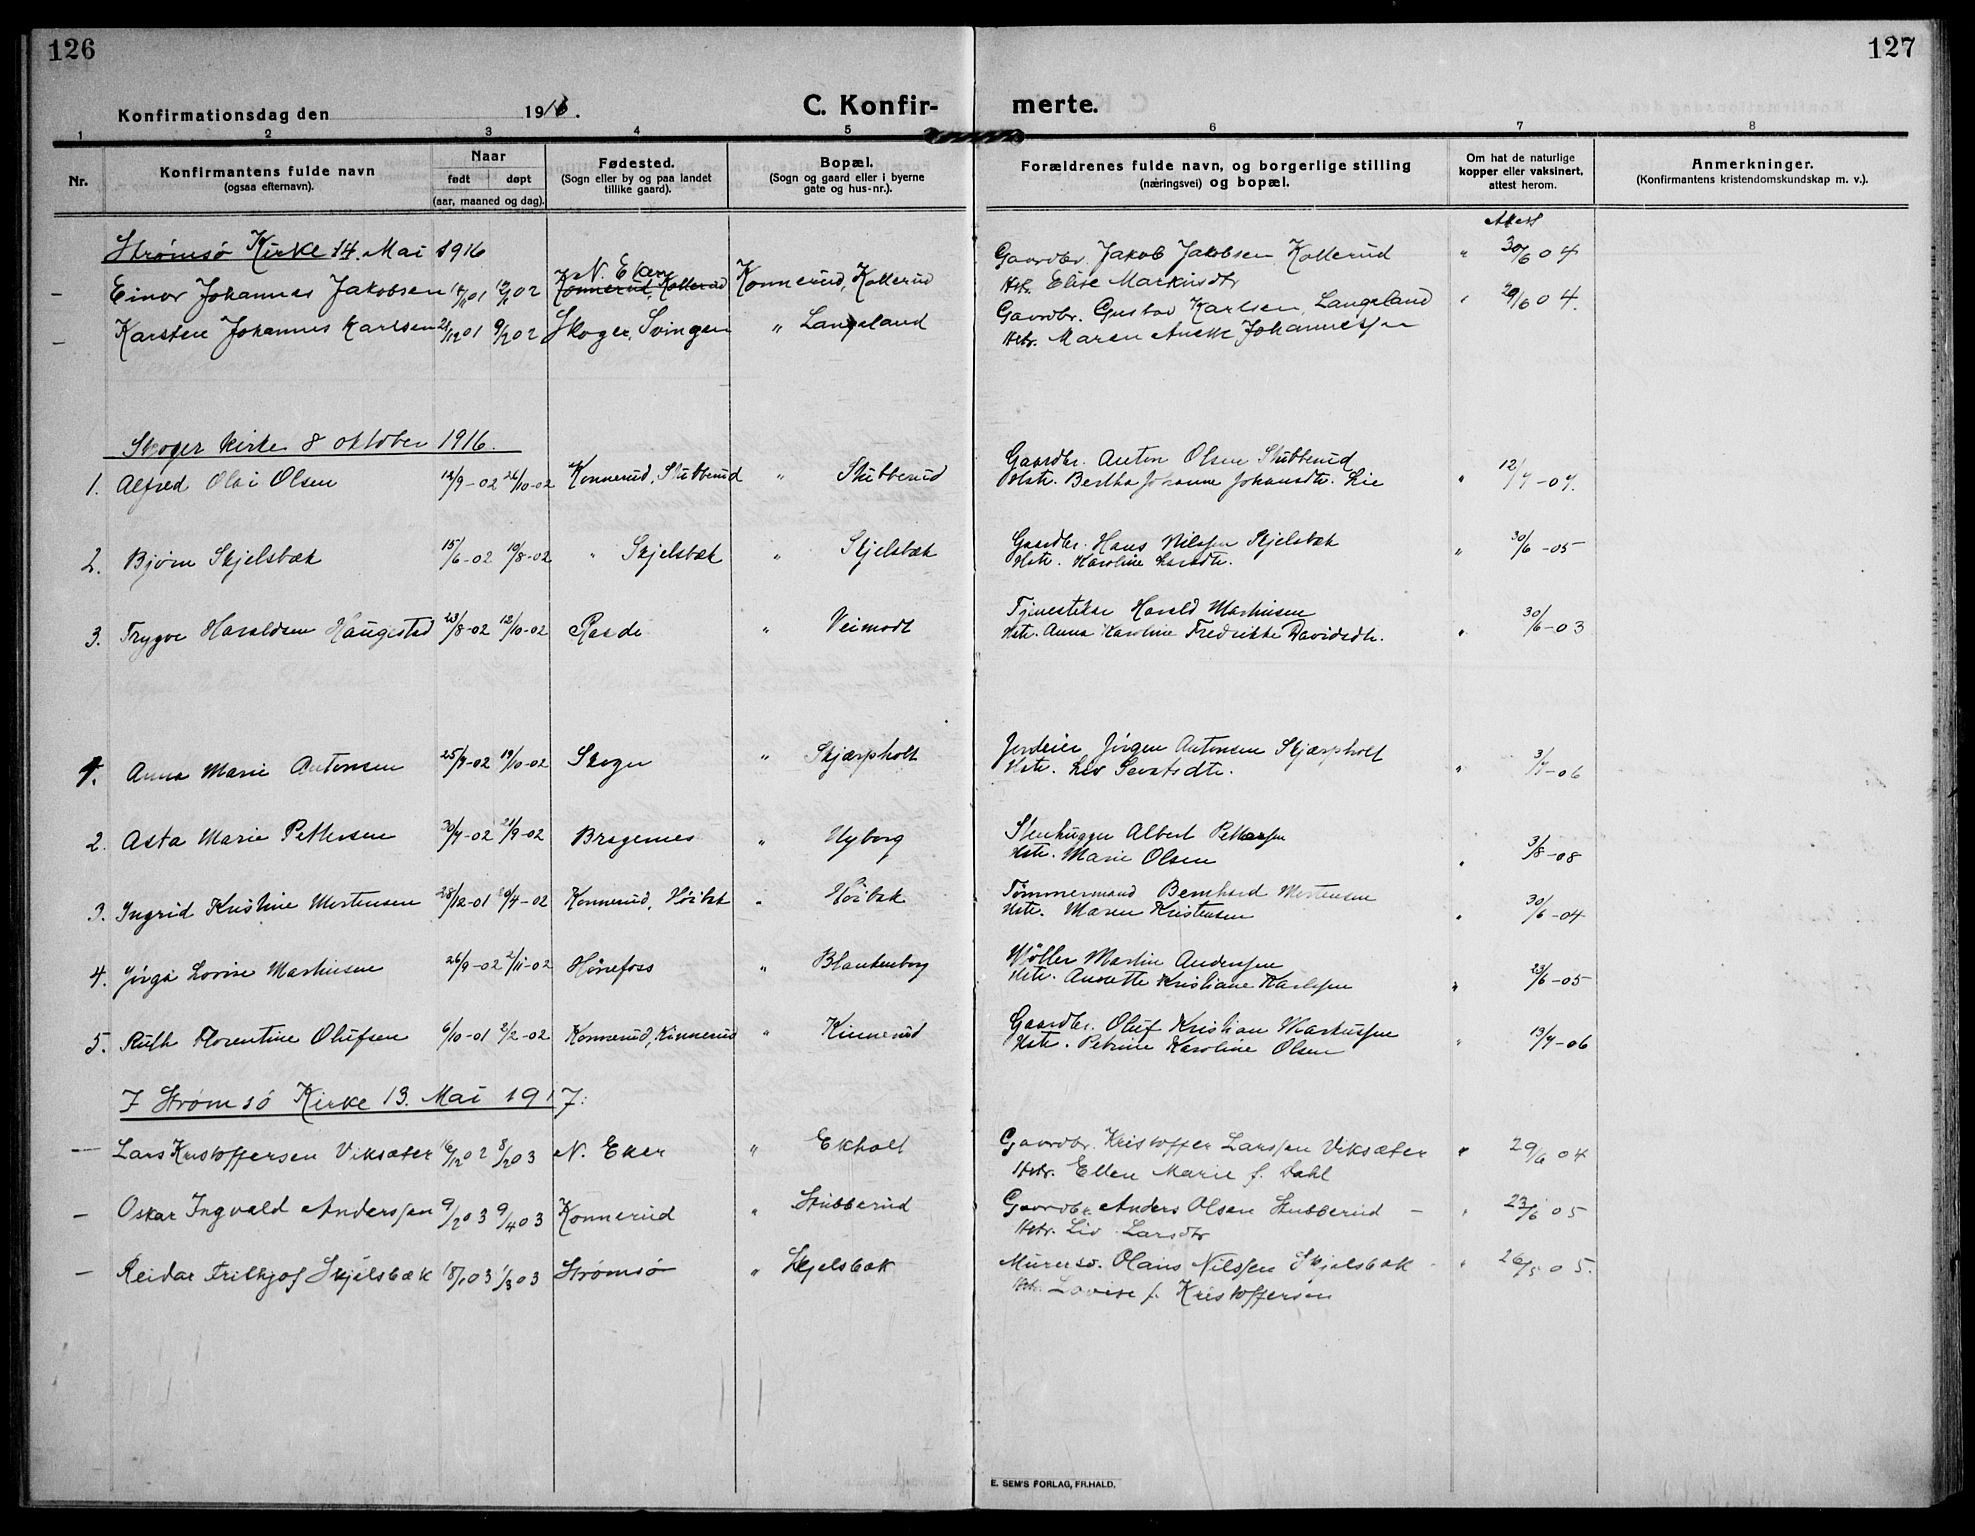 126
127
Konfirmationsdag den 1916.
C. Konfir-
merte.
1 2 3 4 5 6 7 8
Nr.
Konfirmantens fulde navn
(ogsaa efternavn).
Naar
født døpt
(aar, maaned og dag).
Fødested.
(Sogn eller by og paa landet
tillike gaard).
Bopæl.
(Sogn og gaard eller i byerne
gate og hus-nr.).
Forældrenes fulde navn, og borgerlige stilling
(næringsvei) og bopæl.
Om hat de naturlige
kopper eller vaksinert,
attest herom.
Anmerkninger.
(Konfirmantens kristendomskundskap m. v.).
Attest
Strømsø Kirke 14. Mai 1916
N. Eker
– Einar Johannes Jakobsen 01 02 Konnerud, Kollerud Konnerud, Kollerud Gaardbr. Jakob Jakobsen Kollerud " 30/6 04
Hstr. Elise Markusdtr
– Karsten Johannes Karlsen 21/12 01 9/2 02 Skoger, Svingen " Langeland Gaardbr. Gustav Karlsen, Langeland " 29/6 04.
Hstr. Maren Johannessen
Skoger kirke 8 oktober 1916.
1. Alfred Olai Olsen 12/9-02 26/10-02 Konnerud, Stubberud " Stubberud Gaardbr. Anton Olsen Stubberud " 12/7-07.
Hstr. Bertha Johanne Johansdtr. Lie
2. Bjørn Skjelsbæk 15/6-02 10/8-02 " Skjelsbæk " Skjelsbæk Gaardbr. Hans Nilssen Skjelsbæk " 30/6-05
Hstr. Karoline Larsdtr.
3. Trygve Haraldsen Haugestad 23/8-02 12/10-02 Raade " Veimodt Tjenestekar Harald Martinsen " 30/6-03
Hstr. Anna Karoline Fredrikke Davidsdtr.
1. Anna Marie Antonsen 25/7-02 19/10-02 Skoger " Skjærpholt Jordeier Jørgen Antonsen Skjærpholt " 3/7-06
Hstr. Liv
2. Asta Marie Pettersen 30/7-02 21/9-02 Bragernes " Nyborg Stenhugger Albert Pettersen " 3/8-08
Hstr. Marie Olsen
3. Ingrid Kristine Mortensen 28/12-01 4-02 Konnerud, Høibæk " Høibæk Tømmermand Bernhard Mortensen " 30/6-04
Hstr. Maren Kristensen
4. Lovise Martinsen 26/9-02 2/11-02 Hønefoss " Blankenborg Møller Martin Anderssen " 23/6-05
Hstr. Annette Kristiane Karlssen
5. Ruth Florentine Olufsen 6/10-01 2/2-02 Konnerud, Kinnerud " Kinnerud Gaardbr. Oluf Kristian Markussen " 13/7-06
Hstr. Petrine Karoline Olsen
I Strømsø Kirke 13. Mai 1917:
– Lars Kristoffersen Viksæter 16/12 02 8/2 03 N. Eker " Ekholt Gaardbr. Kristoffer Larssen Viksæter " 29/6 04
Hstr. Ellen Marie f. Dahl
– Oskar Ingvald Anderssen 9/2 03 9/4 03 Konnerud " Stubberud Gaardbr. Anders Olsen Stubberud – " 23/6 05
Hstr. Liv Larsdtr
– Reidar Frithjof Skjelsbæk 18/1 03 1/3 03 Strømsø " Skjelsbæk Murersv. Olaus Nilssen Skjelsbæk " 26/5 05.
Hstr. Lovise f. Kristoffersen
E. SEM'S FORLAG, FR.HALD.